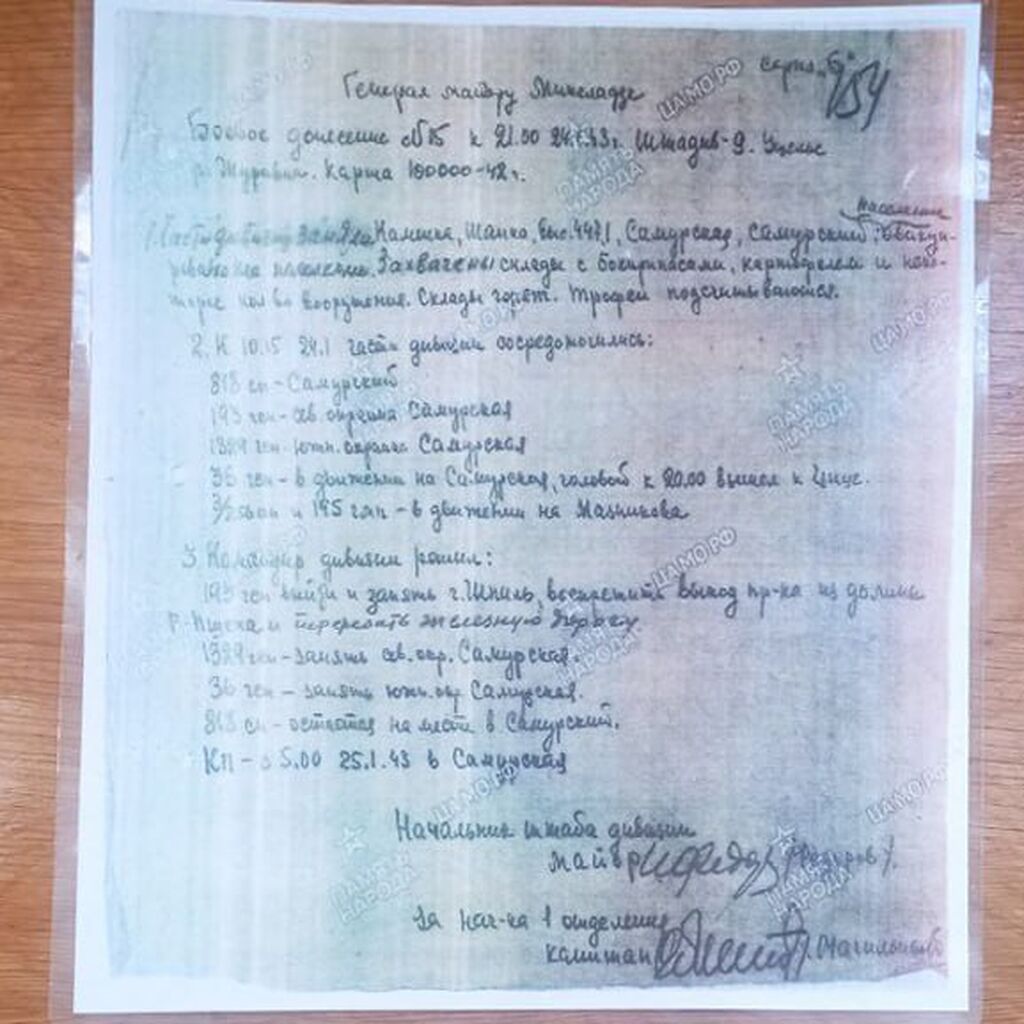 серия "Б"
954
Генерал майору Микеладзе
Боевое донесение №15 к 21.00 24.1.43г. Штадив-9. Ущелье
р. Журавка. Карта 100000-42г.
население
заняли Камыша, Шапка, Выс. 447,1, Самурская, Самурский.
население. Захвачены склады с боеприпасами, картофелем и неко-
торое кол-во вооружения. Склады горят. Трофеи подсчитываются.
2. К 10.15 24.1 части дивизии сосредоточились:
818 сп - Самурский
193 гсп - св. окраина Самурская
1329 гсп - южн. окраина Самурская
36 гсп - в движении на Самурская, головой к 20.00 вышел к
и 195 гмп - в движении на Мазникова
3. Командир дивизии решил:
193 гсп выйти и занять г. Шпиль, воспретить выход пр-ка из долины
р. Пшеха и перервать железную дорогу
1329 гсп - занять св. окр. Самурская.
36 гсп - занять южн. окр Самурская.
818 сп - остается на месте в Самурский.
КП - с 5.00 25.1.43 в Самурская
Начальник штаба дивизии
майор (Федоров).
За нач-ка 1 отделения
капитан
ЦАМО РФ
ПАМЯТЬ НАРОДА